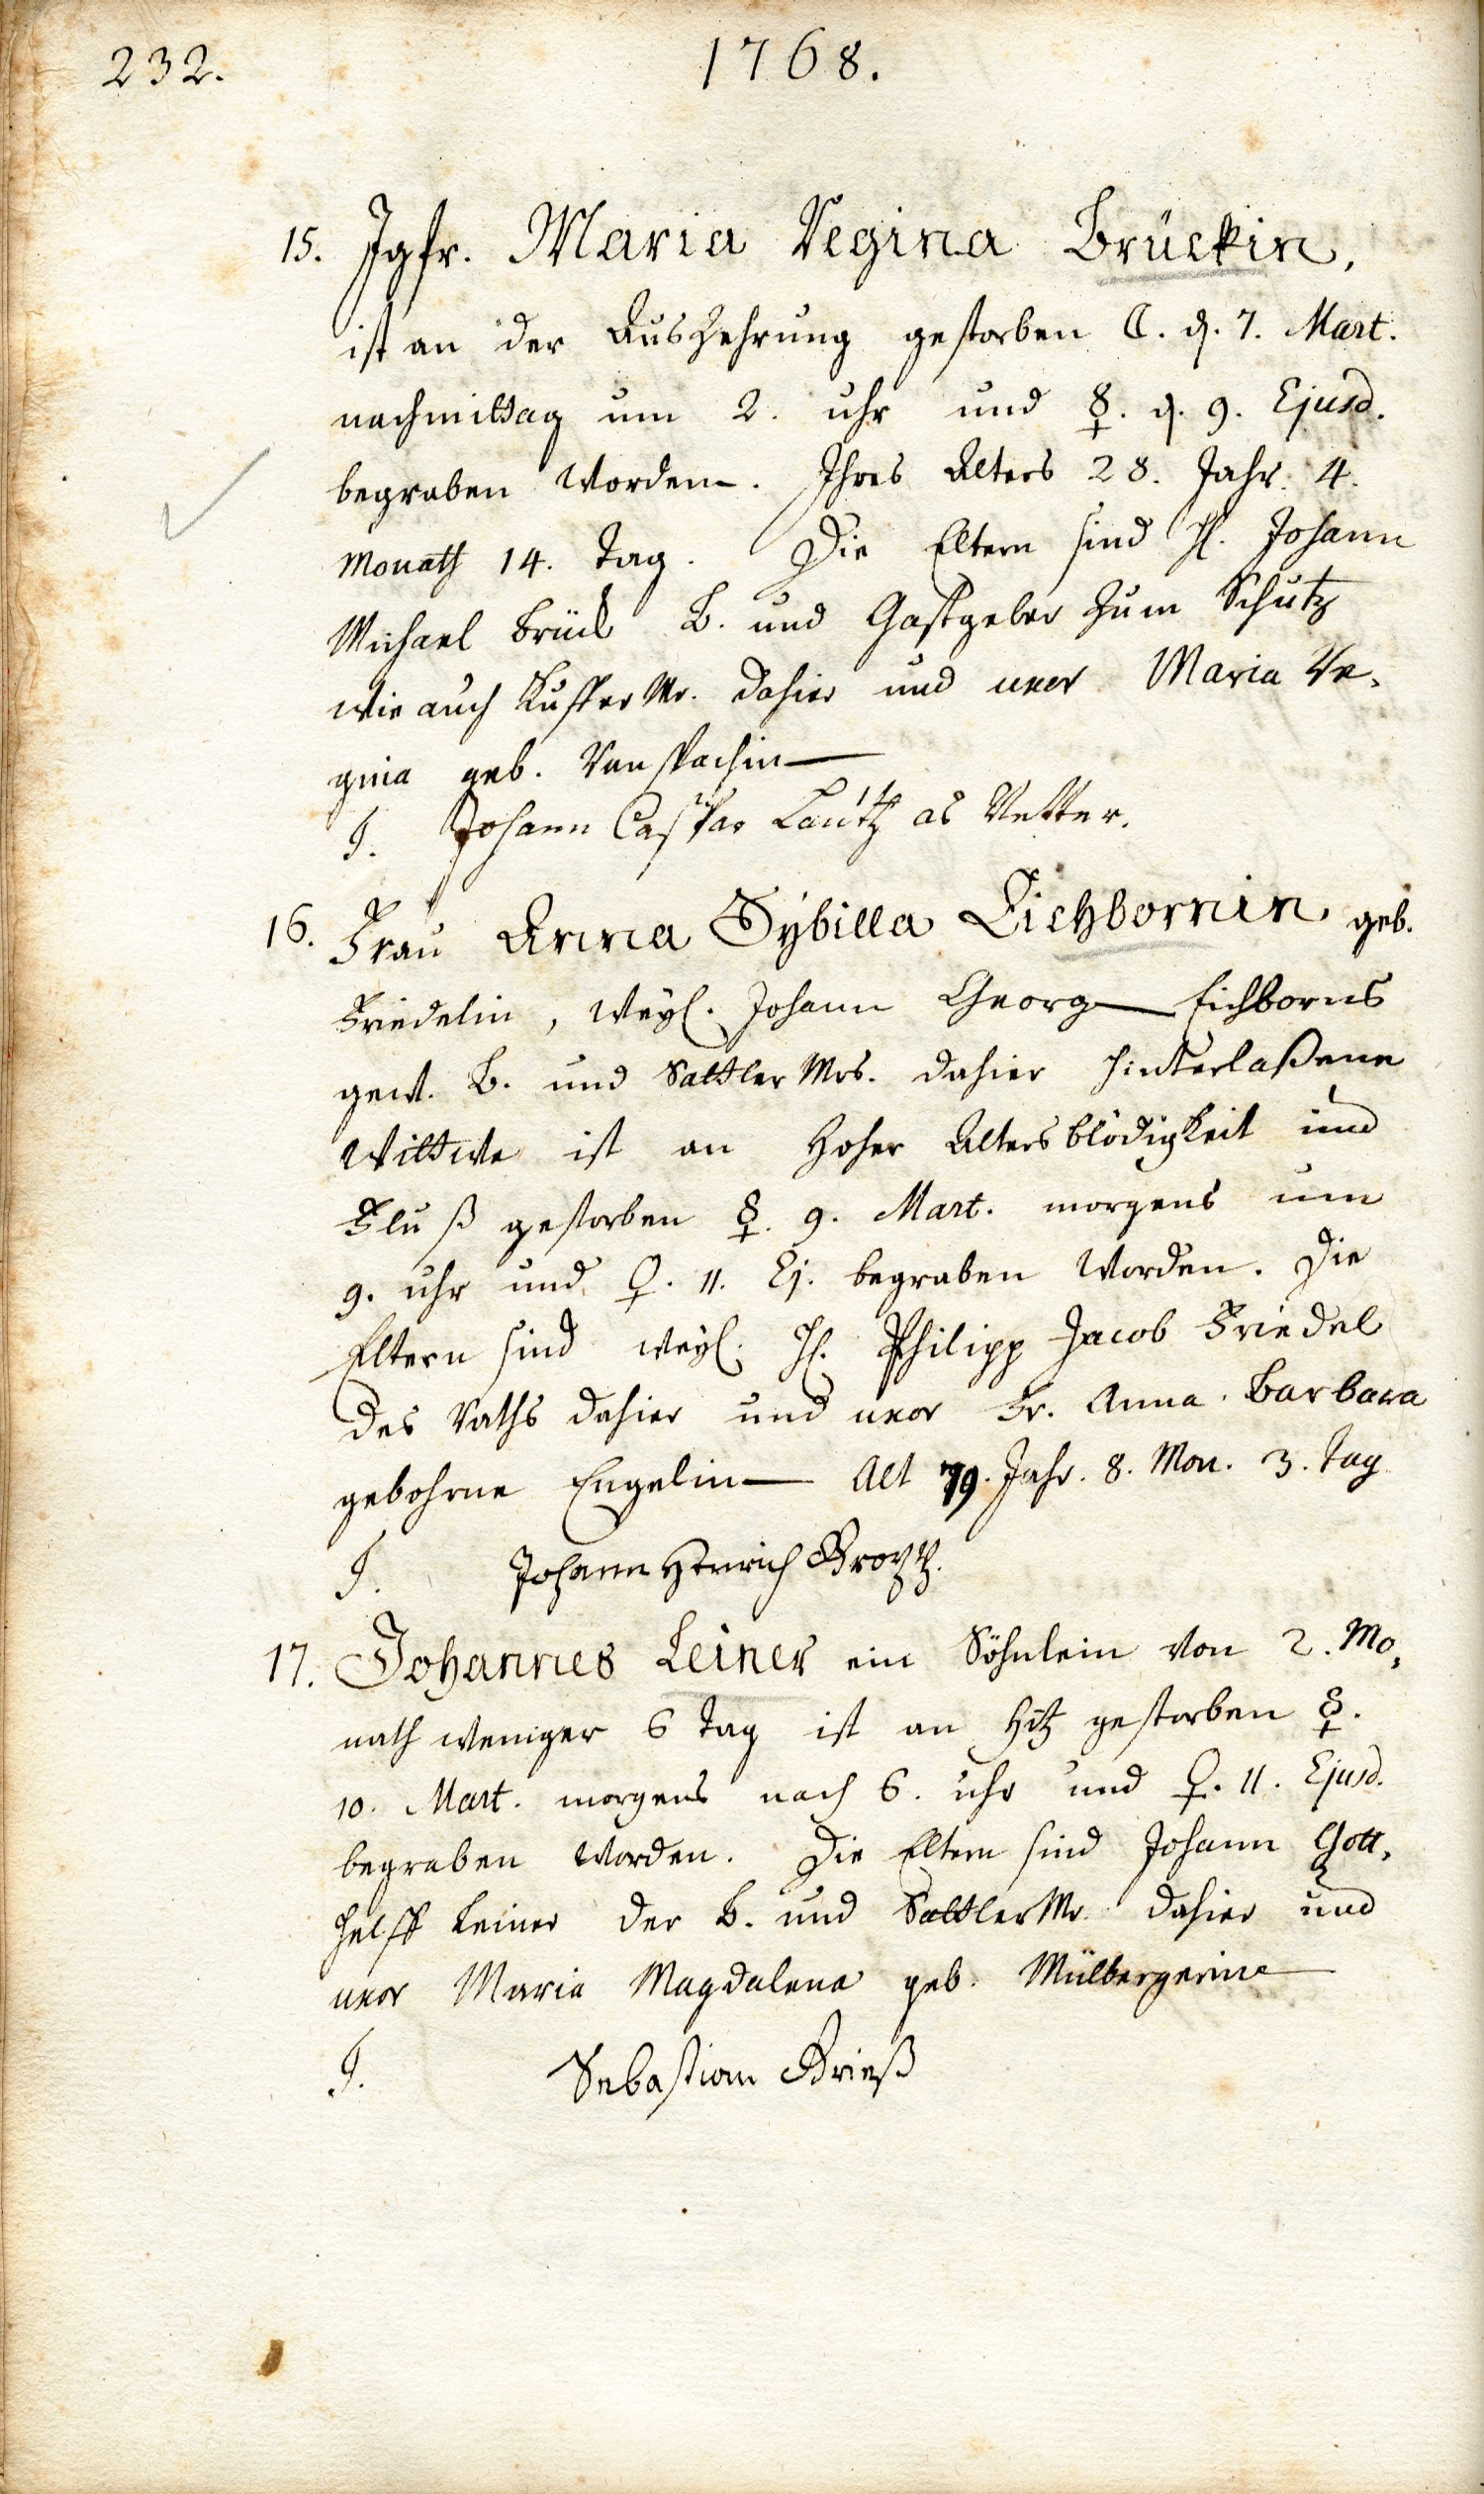 232.
1768.
15. Jgfr. Maria Regina Brückin,
ist an der Auszehrung gestorben ☾. d. 7. Mart.
nachmittag um 2. uhr und ☿. d. 9. Ejusd.
begraben worden. Ihres Alters 28. Jahr. 4.
Monath 14. Tag. Die Eltern sind H. Johann
Michael Brück B. und Gastgeber zum Schütz
wie auch Kuffer Mr. dahier und uxor Maria Re„
gina geb. Ranspachin
T. Johann Caspar Lautz als Vetter.
16. Frau Anna Sÿbilla Eichbornin geb.
Friedelin, weÿl. Johann Georg Eichborns
gew. B. und Sattler Mrs. dahier hinterlaßene
Wittwe ist an hoher Altersblödigkeit und
Fluß gestorben ☿. 9. Mart. morgens um
9. uhr und ♀. 11. Ej. begraben worden. Die
Eltern sind weÿl. H. Philipp Jacob Friedel
des Raths dahier und uxor Fr. Anna Barbara
gebohrne Engelin Alt 79. Jahr. 8. Mon. 3. Tag
T. Johann Henrich
17. Johannes Leiner ein Söhnlein von 2. Mo„
nath weniger 6 Tag ist an Hitz gestorben ☿.
10. Mart. morgens nach 6. uhr und ♀. 11. Ejusd.
begraben worden. Die Eltern sind Johann Gott„
helff Leiner der B. und Sattler Mr. dahier und
uxor Maria Magdalena geb. Mülbergerin
T. Sebastian Grieß